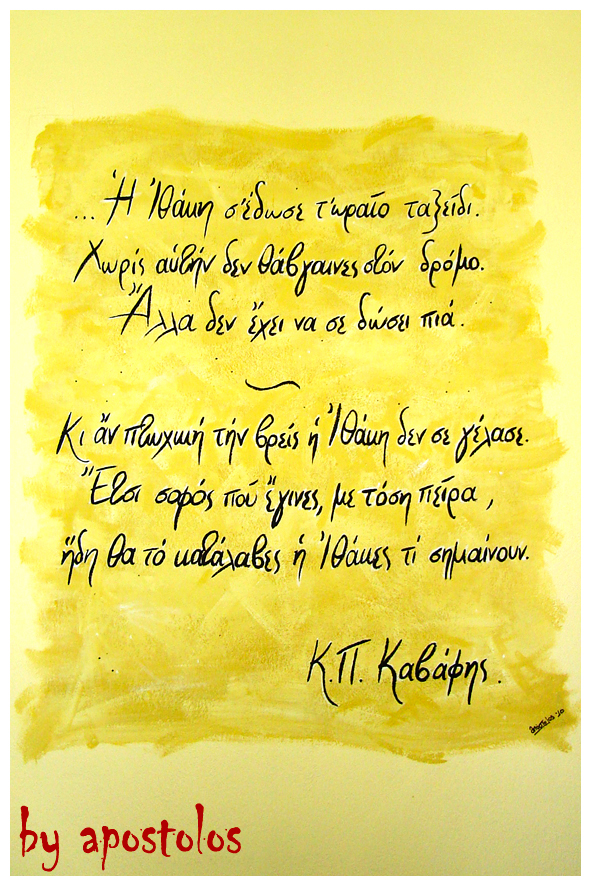 ...Ἡ Ἰθάκη σ'έδωσε τ'ωραίο ταξείδι.
Χωρίς αὐτήν δεν θάβγαινες στόν δρόμο.
Ἄλλα δεν ἔχει να σε δώσει πιά.
Κι ἄν πτωχική τήν βρείς ἡ Ἰθάκη δεν σε γέλασε.
Ἔτσι σοφός πού ἔγινες, με τόση πείρα,
ἤδη θα τό κατάλαβες ἡ Ἰθάκες τί σημαίνουν.
Κ.Π. Καβάφης.
by apostolos